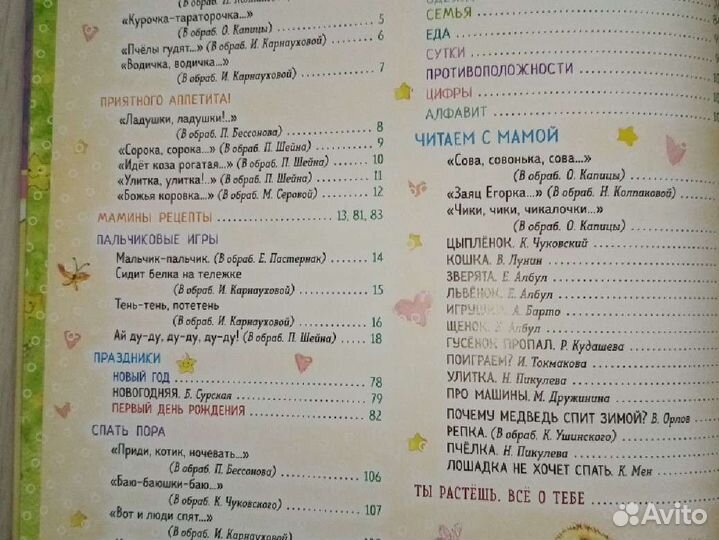 «Курочка-тараторочка...»
(В обраб. О. Капицы) 5
«Пчёлы гудят...» (В обраб. И. Карнауховой) 6
«Водичка, водичка...»
(В обраб. И. Карнауховой) 7
ПРИЯТНОГО АППЕТИТА!
«Ладушки, ладушки!..»
(В обраб. П. Бессонова) 8
«Сорока, сорока...» (В обраб. П. Шейна) 9
«Идёт коза рогатая...» (В обраб. П. Шейна) 10
«Улитка, улитка!..» (В обраб. П. Шейна) 11
«Божья коровка...» (В обраб. М. Серовой) 12
МАМИНЫ РЕЦЕПТЫ 13, 81, 83
ПАЛЬЧИКОВЫЕ ИГРЫ
Мальчик-пальчик. (В обраб. Е. Пастернак) 14
Сидит белка на тележке
(В обраб. И. Карнауховой) 15
Тень-тень, потетень
(В обраб. И. Карнауховой) 16
Ай ду-ду, ду-ду, ду-ду! (В обраб. П. Шейна) 18
ПРАЗДНИКИ
НОВЫЙ ГОД 78
НОВОГОДНЯЯ. Б. Сурская 79
ПЕРВЫЙ ДЕНЬ РОЖДЕНИЯ 82
СПАТЬ ПОРА
«Приди, котик, ночевать...»
(В обраб. П. Бессонова) 106
«Баю-баюшки-баю...»
(В обраб. К. Чуковского) 107
«Вот и люди спят...»
(В обраб. И. Карнауховой)
СЕМЬЯ
ЕДА
СУТКИ
ПРОТИВОПОЛОЖНОСТИ
ЦИФРЫ
АЛФАВИТ
ЧИТАЕМ С МАМОЙ
«Сова, совонька, сова...»
(В обраб. О. Капицы)
«Заяц Егорка...» (В обраб. Н. Колпаковой)
«Чики, чики, чикалочки...»
(В обраб. О. Капицы)
ЦЫПЛЁНОК. К. Чуковский
КОШКА. В. Лунин
ЗВЕРЯТА. Е. Албул
ЛЬВЁНОК. Е. Албул
ИГРУШКИ. А. Барто
ЩЕНОК. Е. Албул
ГУСЁНОК ПРОПАЛ. Р. Кудашева
ПОИГРАЕМ? И. Токмакова
УЛИТКА. Н. Пикулева
ПРО МАШИНЫ. М. Дружинина
ПОЧЕМУ МЕДВЕДЬ СПИТ ЗИМОЙ? В. Орлов
РЕПКА. (В обраб. К. Ушинского)
ПЧЁЛКА. Н. Пикулева
ЛОШАДКА НЕ ХОЧЕТ СПАТЬ. К. Мен
ТЫ РАСТЁШЬ. ВСЁ О ТЕБЕ
Avito